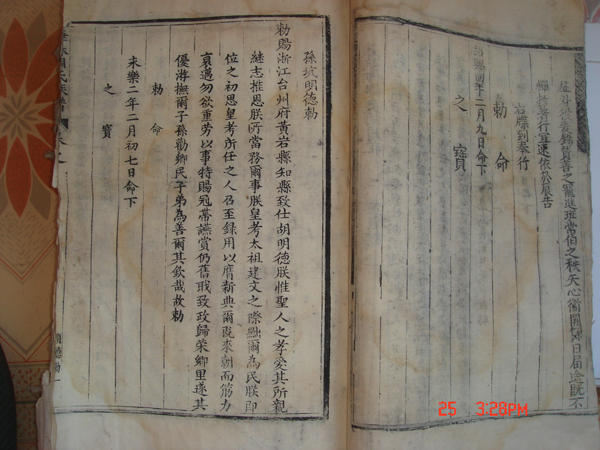 之寵進班當伯之秩天心
右牒到奉行
勅命
四年十二月九日命下
之寶
孫坑明德勅
勅賜浙江台州府黃岩縣知縣致仕胡明德朕惟聖人之孝愛其所親
継志推恩朕所當務爾事朕皇考太祖建文之際黜爾為民朕即
位之初思皇考所任之人召至録用以膺新典爾既來朝而筋力
衰邁勿欲重勞以事特賜冠帶讌賞仍舊職致政歸榮鄉里遂其
優游撫爾子孫勸鄉民子弟為善爾其欽哉故勅
勅命
永樂二年二月初七日命下
之寶
氏族譜
25 3:28PM